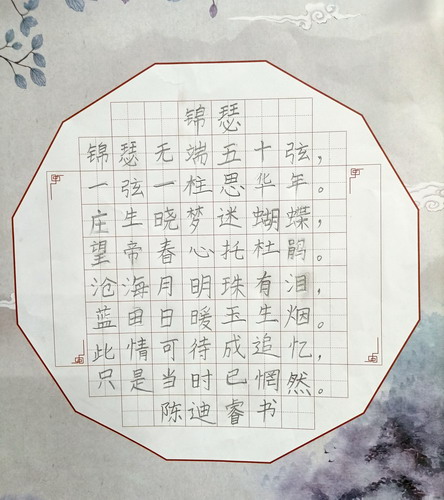 锦瑟
锦瑟无端五十弦，
一弦一柱思华年。
庄生晓梦迷蝴蝶，
望帝春心托杜鹃。
沧海月明珠有泪，
蓝田日暖玉生烟。
此情可待成追忆，
只是当时已惘然。
陈迪睿书